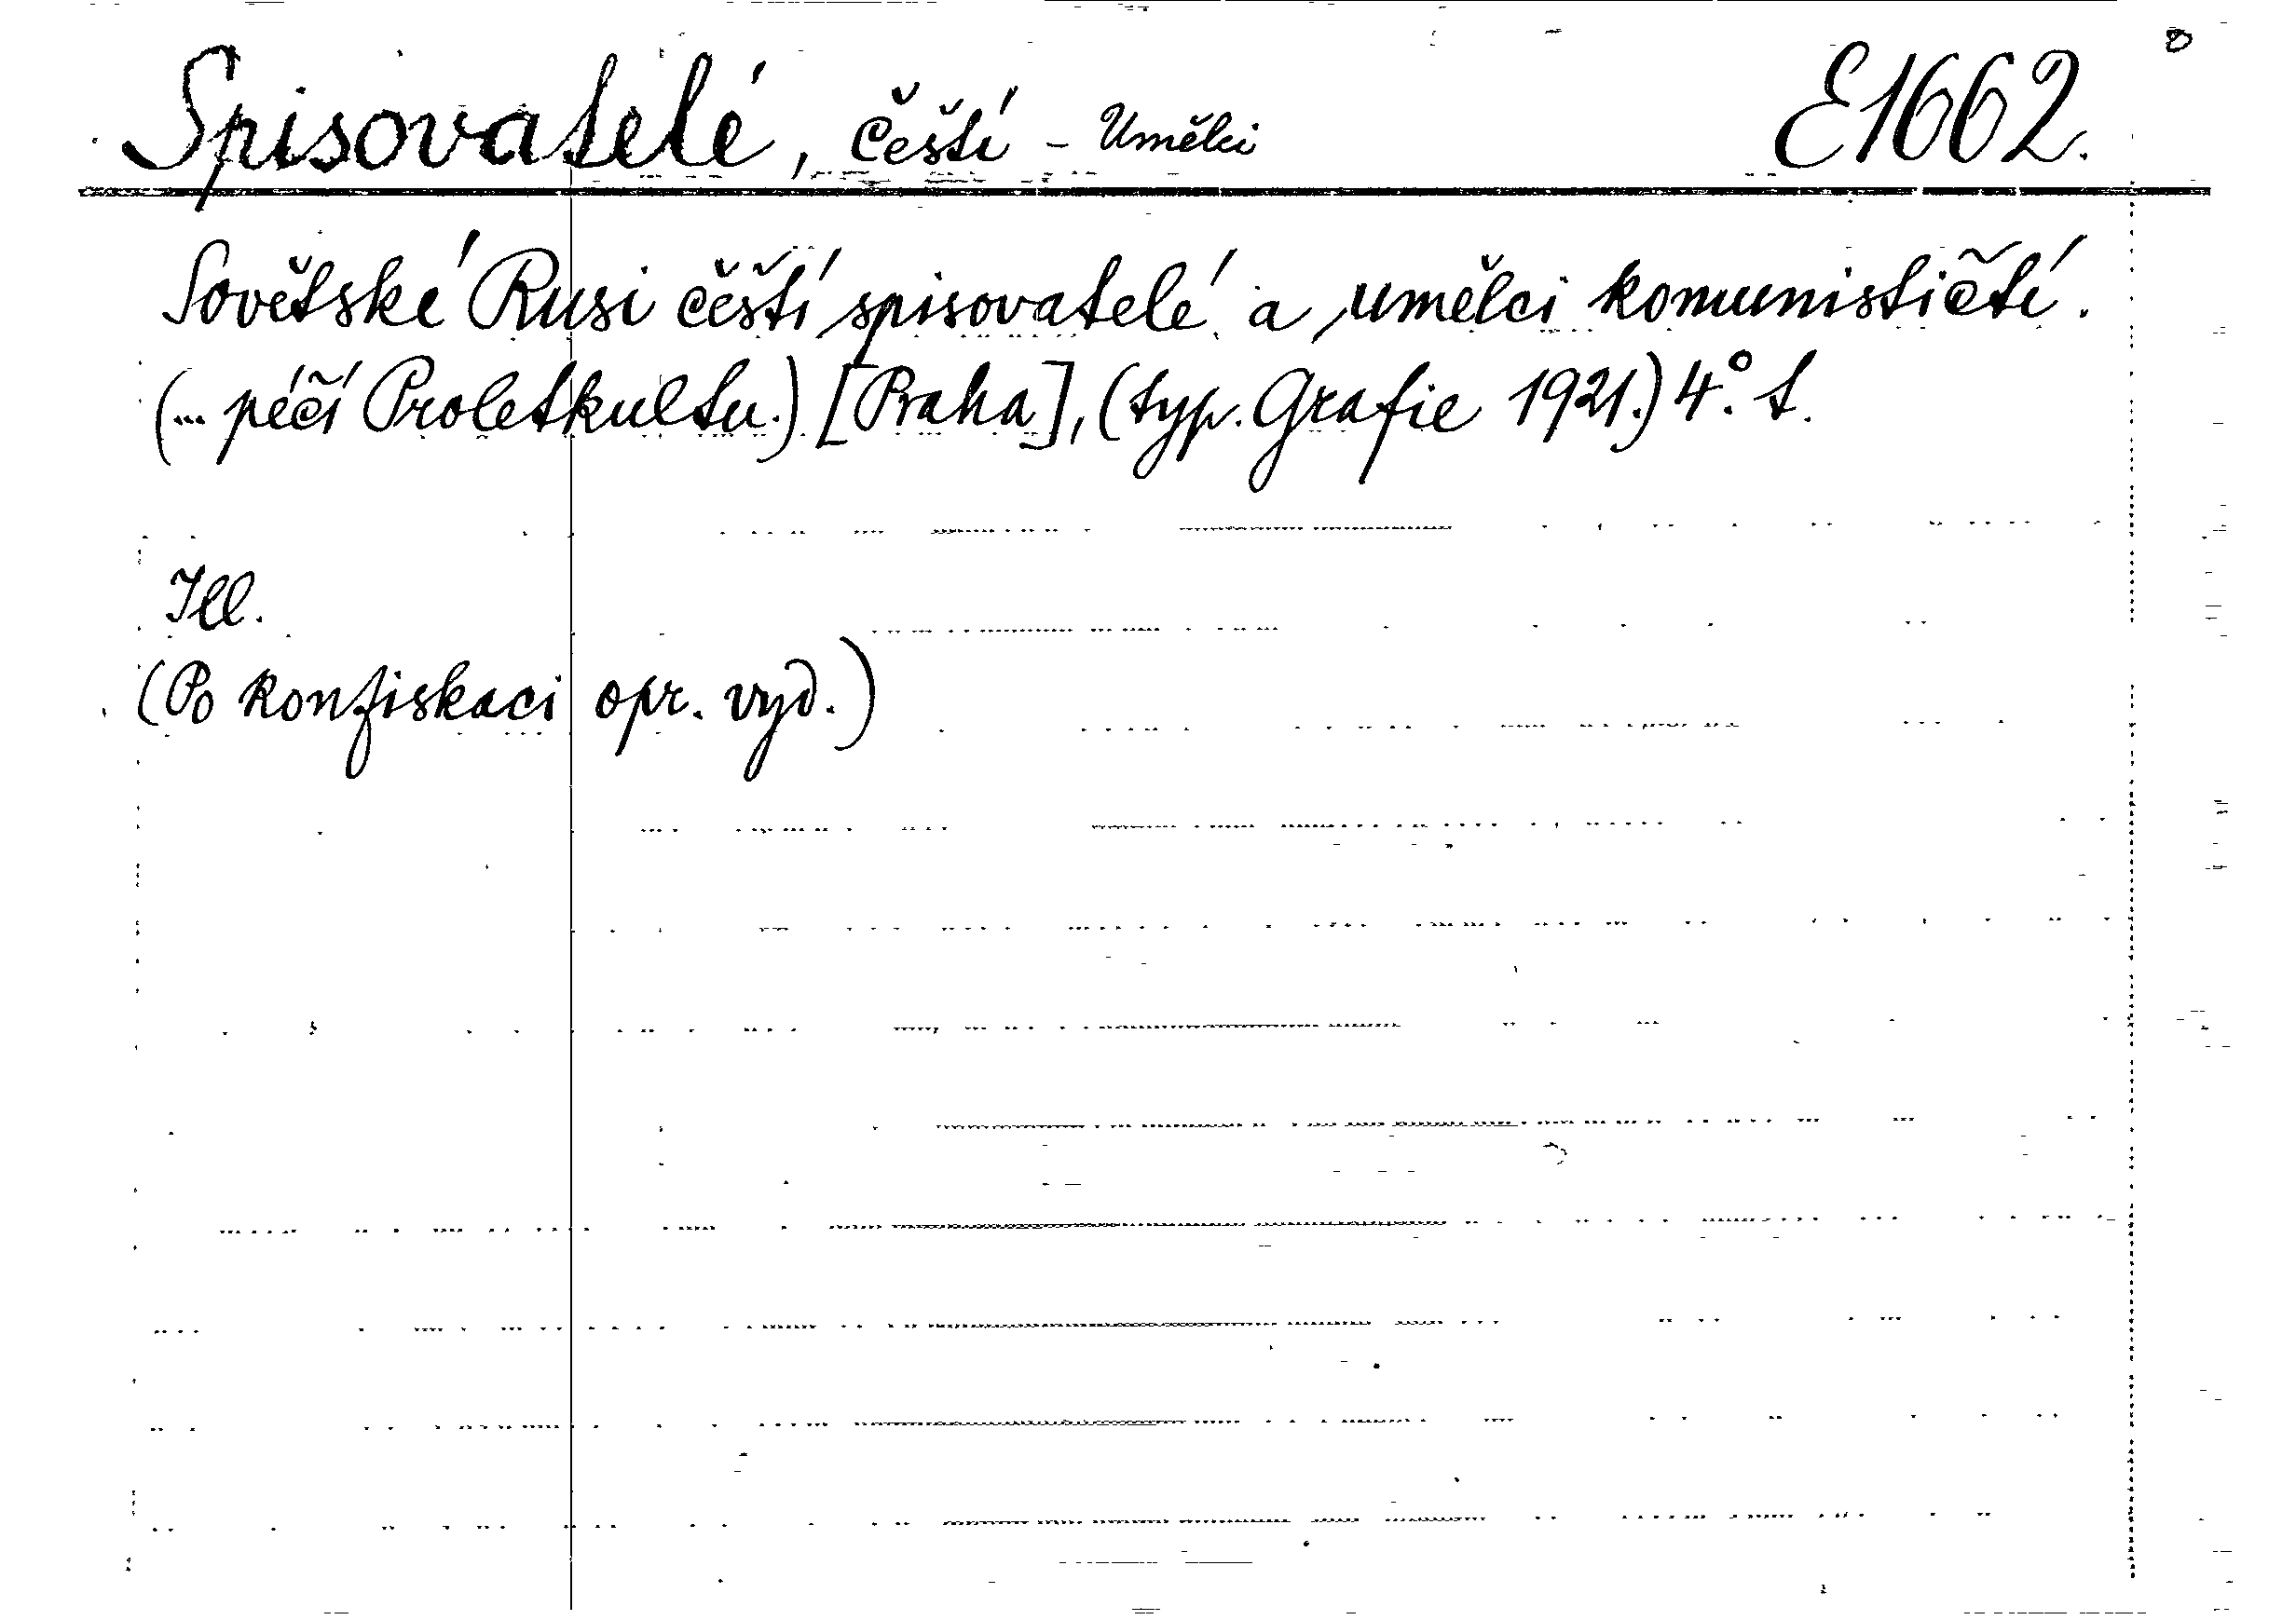 Spisovatelé, čeští - Umělci E1662.
Sovětské Rusi čeští spisovatelé a umělci komunističtí.
(... péčí Proletkultu.) [Praha], (typ. Grafie 1921.) 4°. t.
Ill.
(Po konfiskaci opr. vyd.)